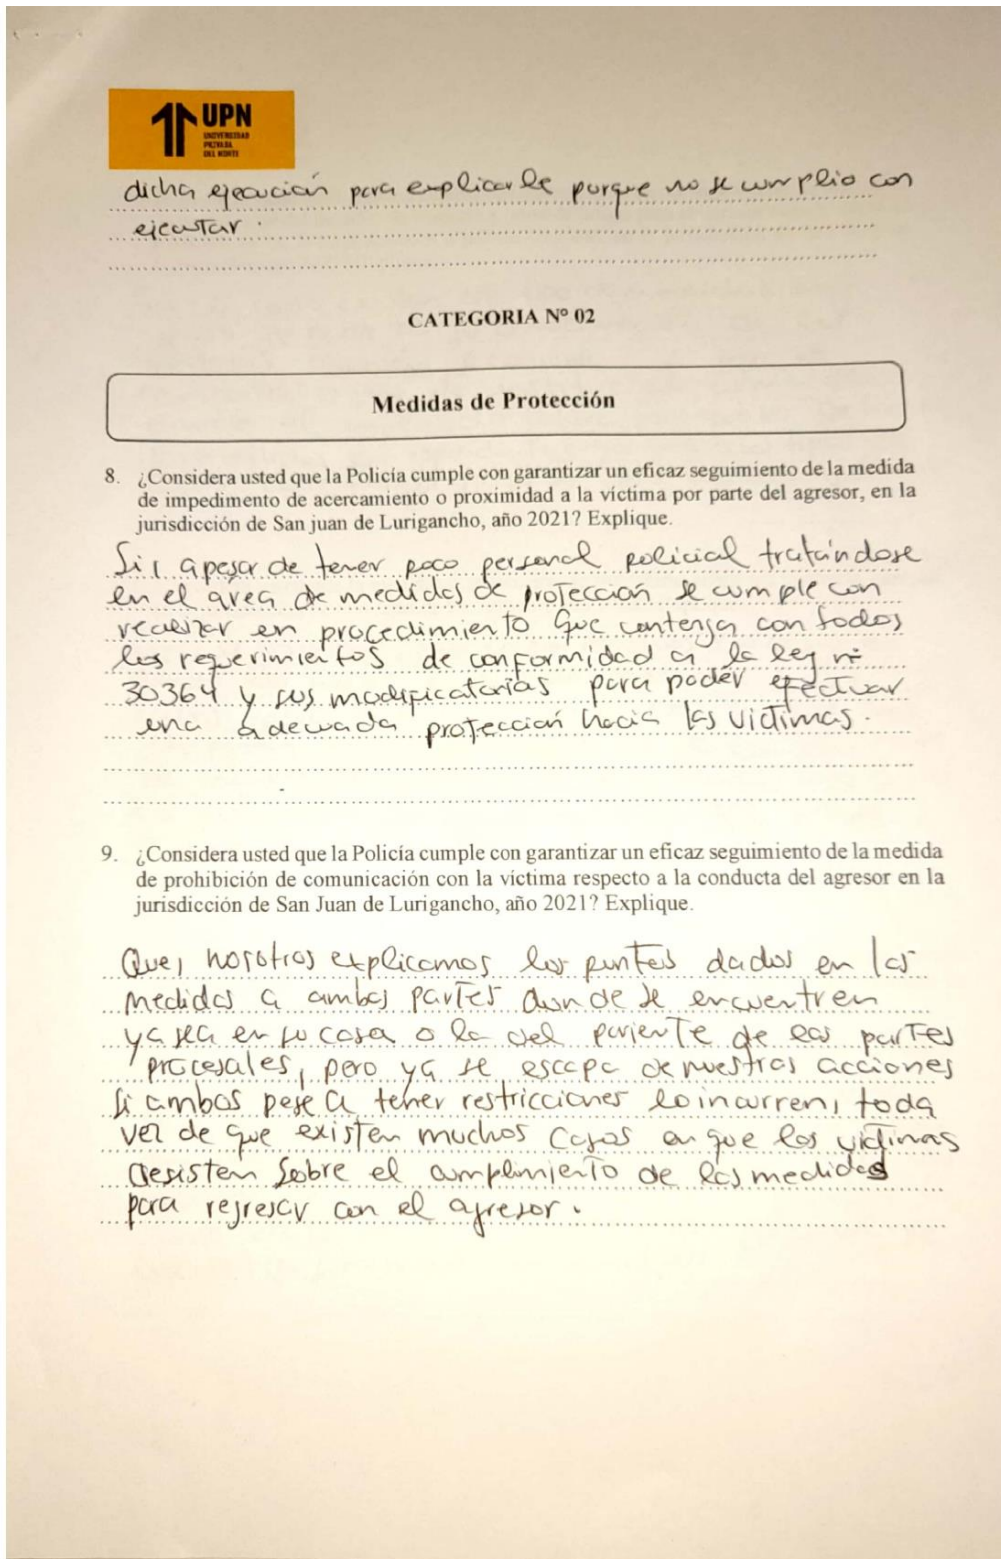 UPN
UNIVERSIDAD
PRIVADA
DEL NORTE
dicha ejecución para explicarle porque no se cumplio con
ejecutar.
CATEGORIA Nº 02
Medidas de Protección
8. ¿Considera usted que la Policía cumple con garantizar un eficaz seguimiento de la medida
de impedimento de acercamiento o proximidad a la víctima por parte del agresor, en la
jurisdicción de San juan de Lurigancho, año 2021? Explique.
Si, apesar de tener poco personal policial tratándose
en el area de medidas de protección se cumple con
realizar en procedimiento que contenga con todos
los requerimientos de conformidad a la ley nº
30364 y sus modificatorias para poder efectuar
una adecuada protección hacia las victimas.
9. ¿Considera usted que la Policía cumple con garantizar un eficaz seguimiento de la medida
de prohibición de comunicación con la víctima respecto a la conducta del agresor en la
jurisdicción de San Juan de Lurigancho, año 2021? Explique.
Que, nosotros explicamos los puntos dados en las
medidas a ambas partes donde se encuentren
ya sea en su casa o la del pariente de las partes
procesales, pero ya se escapa de nuestras acciones
si ambos pese a tener restricciones lo incurren, toda
vez de que existen muchos casos en que las victimas
desisten sobre el cumplimiento de las medidas
para regresar con el agresor.